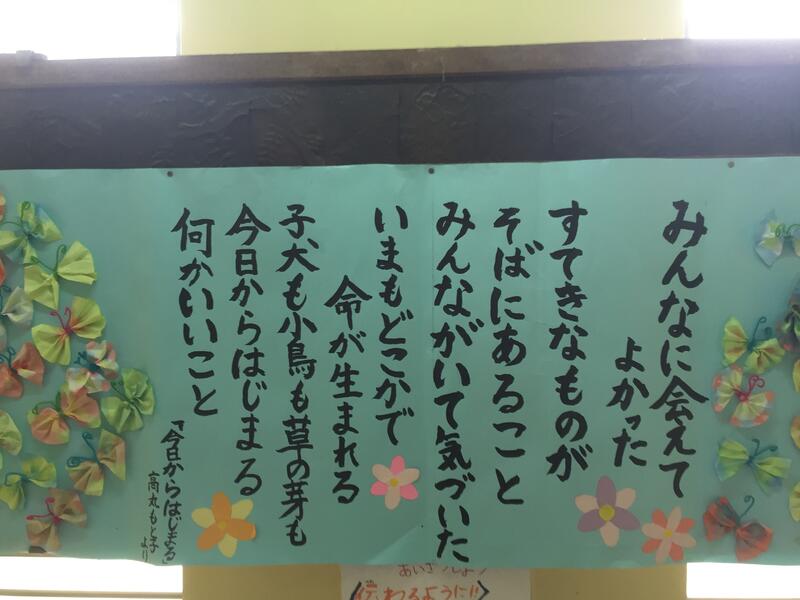 みんなに会えて
よかった
すてきなものが
そばにあること
みんながいて気づいた
いまもどこかで
命が生まれる
子犬も小鳥も草の芽も
今日からはじまる
何かいいこと
「今日からはじまる」
高丸もと子
より
伝わるように!!